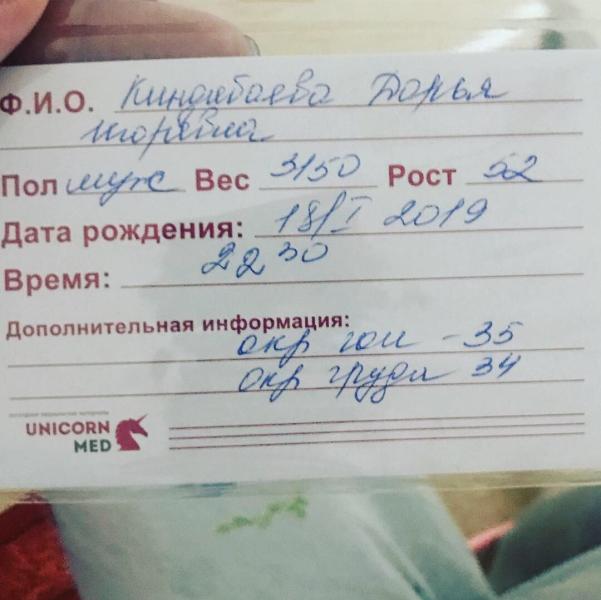 Ф.И.О. Киндябаева Дарья
Игоревна
Пол муж Вес 3150 Рост 52
Дата рождения: 18/I 2019
Время: 22 30
Дополнительная информация:
окр гол - 35
окр груди 34
UNICORN
MED